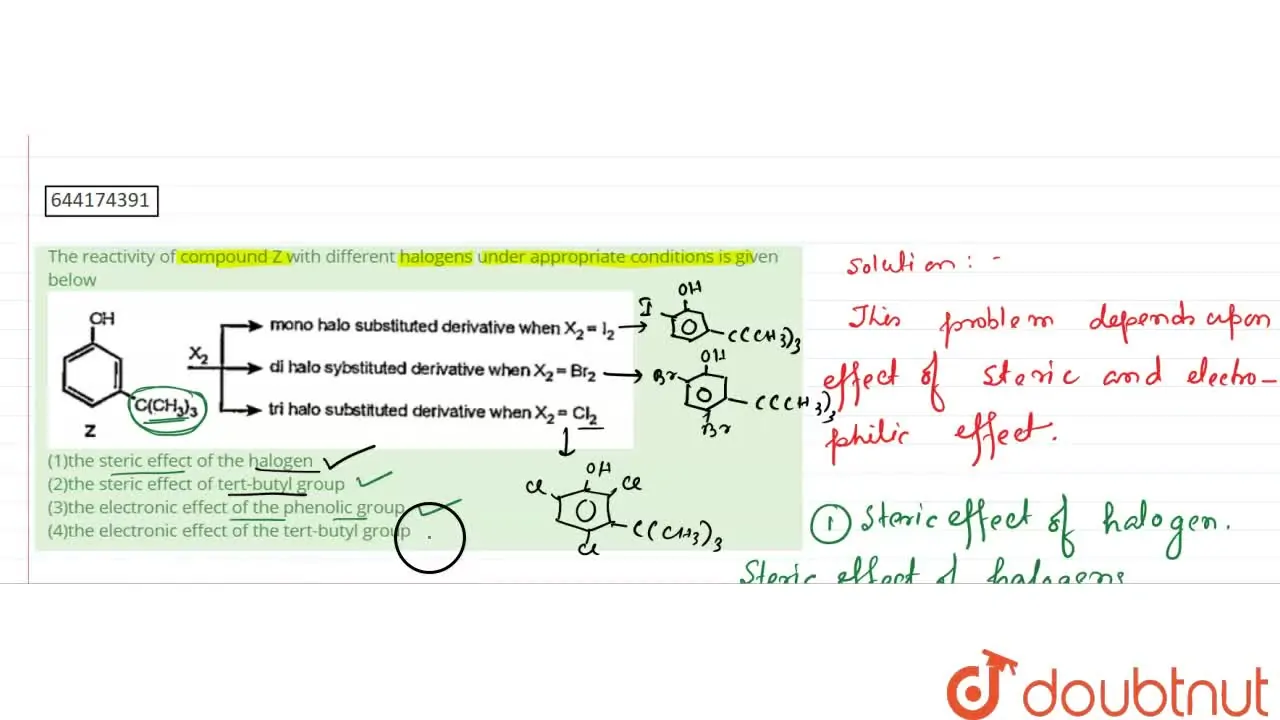 644174391
The reactivity of compound Z with different halogens under appropriate conditions is given
below
OH
X2
C(CH3)3
Z
mono halo substituted derivative when X2 = I2
di halo sybstituted derivative when X2 = Br2
tri halo substituted derivative when X2 = Cl2
OH
I
C(CH3)3
OH
Br
C(CH3)3
Br
OH
Cl
Cl
C(CH3)3
Cl
(1)the steric effect of the halogen
(2)the steric effect of tert-butyl group
(3)the electronic effect of the phenolic group
(4)the electronic effect of the tert-butyl group
Solution: -
This problem depends upon
effect of steric and electro-
philic effect.
1 Steric effect of halogen.
Steric effect of halogens
doubtnut